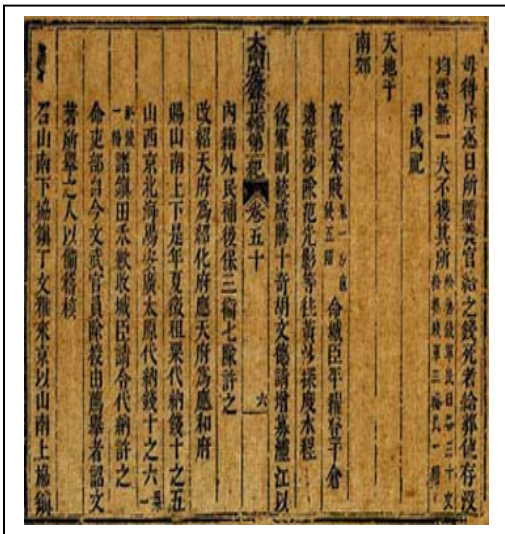 毋得斥逐日所贍養官給之錢死者給葬使存沒
均霑無一夫不獲其所給養錢軍民日各三十文給葬錢軍三緡民一緡
甲戌祀
天地于
南郊
嘉定米賤米一方直錢五陌命城臣平糴登于倉
遣黃沙隊范光影等往黃沙探度水程
後軍副統威勝十奇胡文請增募瀘江以
大南寔錄正編第一紀 卷五十 六
內籍外民補後保三衛七隊許之
改紹天府為紹化府應天府為應和府
賜山南上下是年夏徵租粟代納錢十之五
山西京北海陽安廣太原代納錢十之六粟一
斛錢一緡諸鎮田禾歉收城臣請令代納許之
命吏部自今文武官員除授由薦舉者詔文
著所舉之人以備稽核
召山南下協鎮丁文雅來京以山南上協鎮